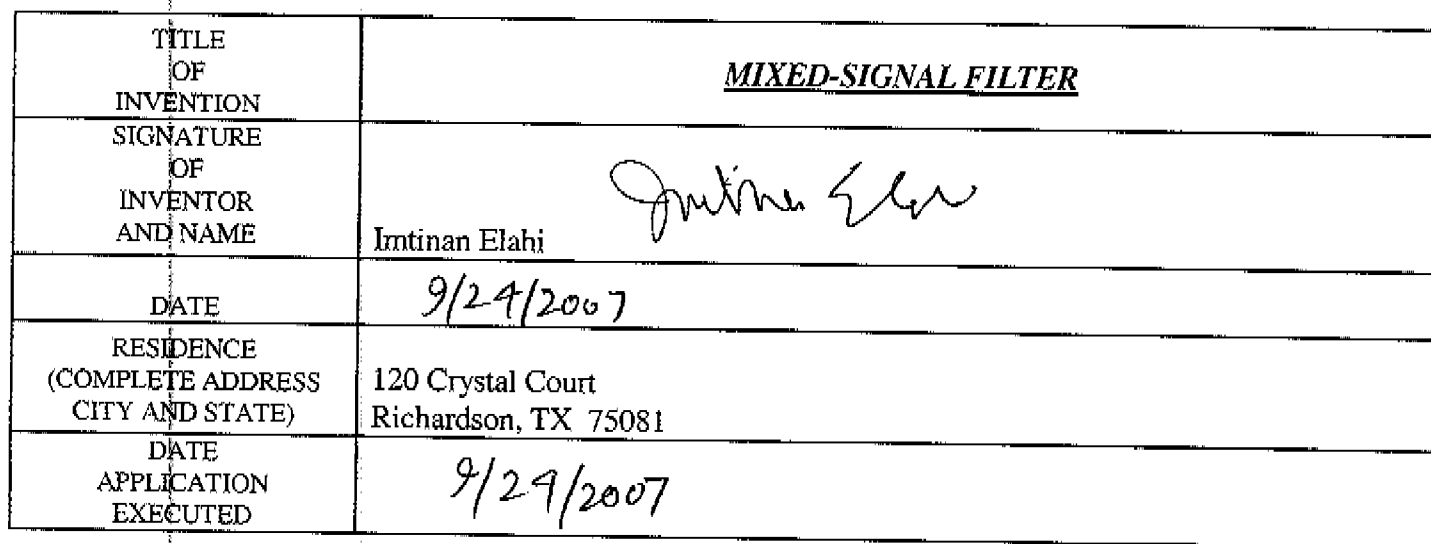 TITLE
OF
INVENTION
MIXED-SIGNAL FILTER
SIGNATURE
OF
INVENTOR
AND NAME
Imtinan Elahi
DATE
9/24/2007
RESIDENCE
(COMPLETE ADDRESS
CITY AND STATE)
120 Crystal Court
Richardson, TX 75081
DATE
APPLICATION
EXECUTED
9/24/2007